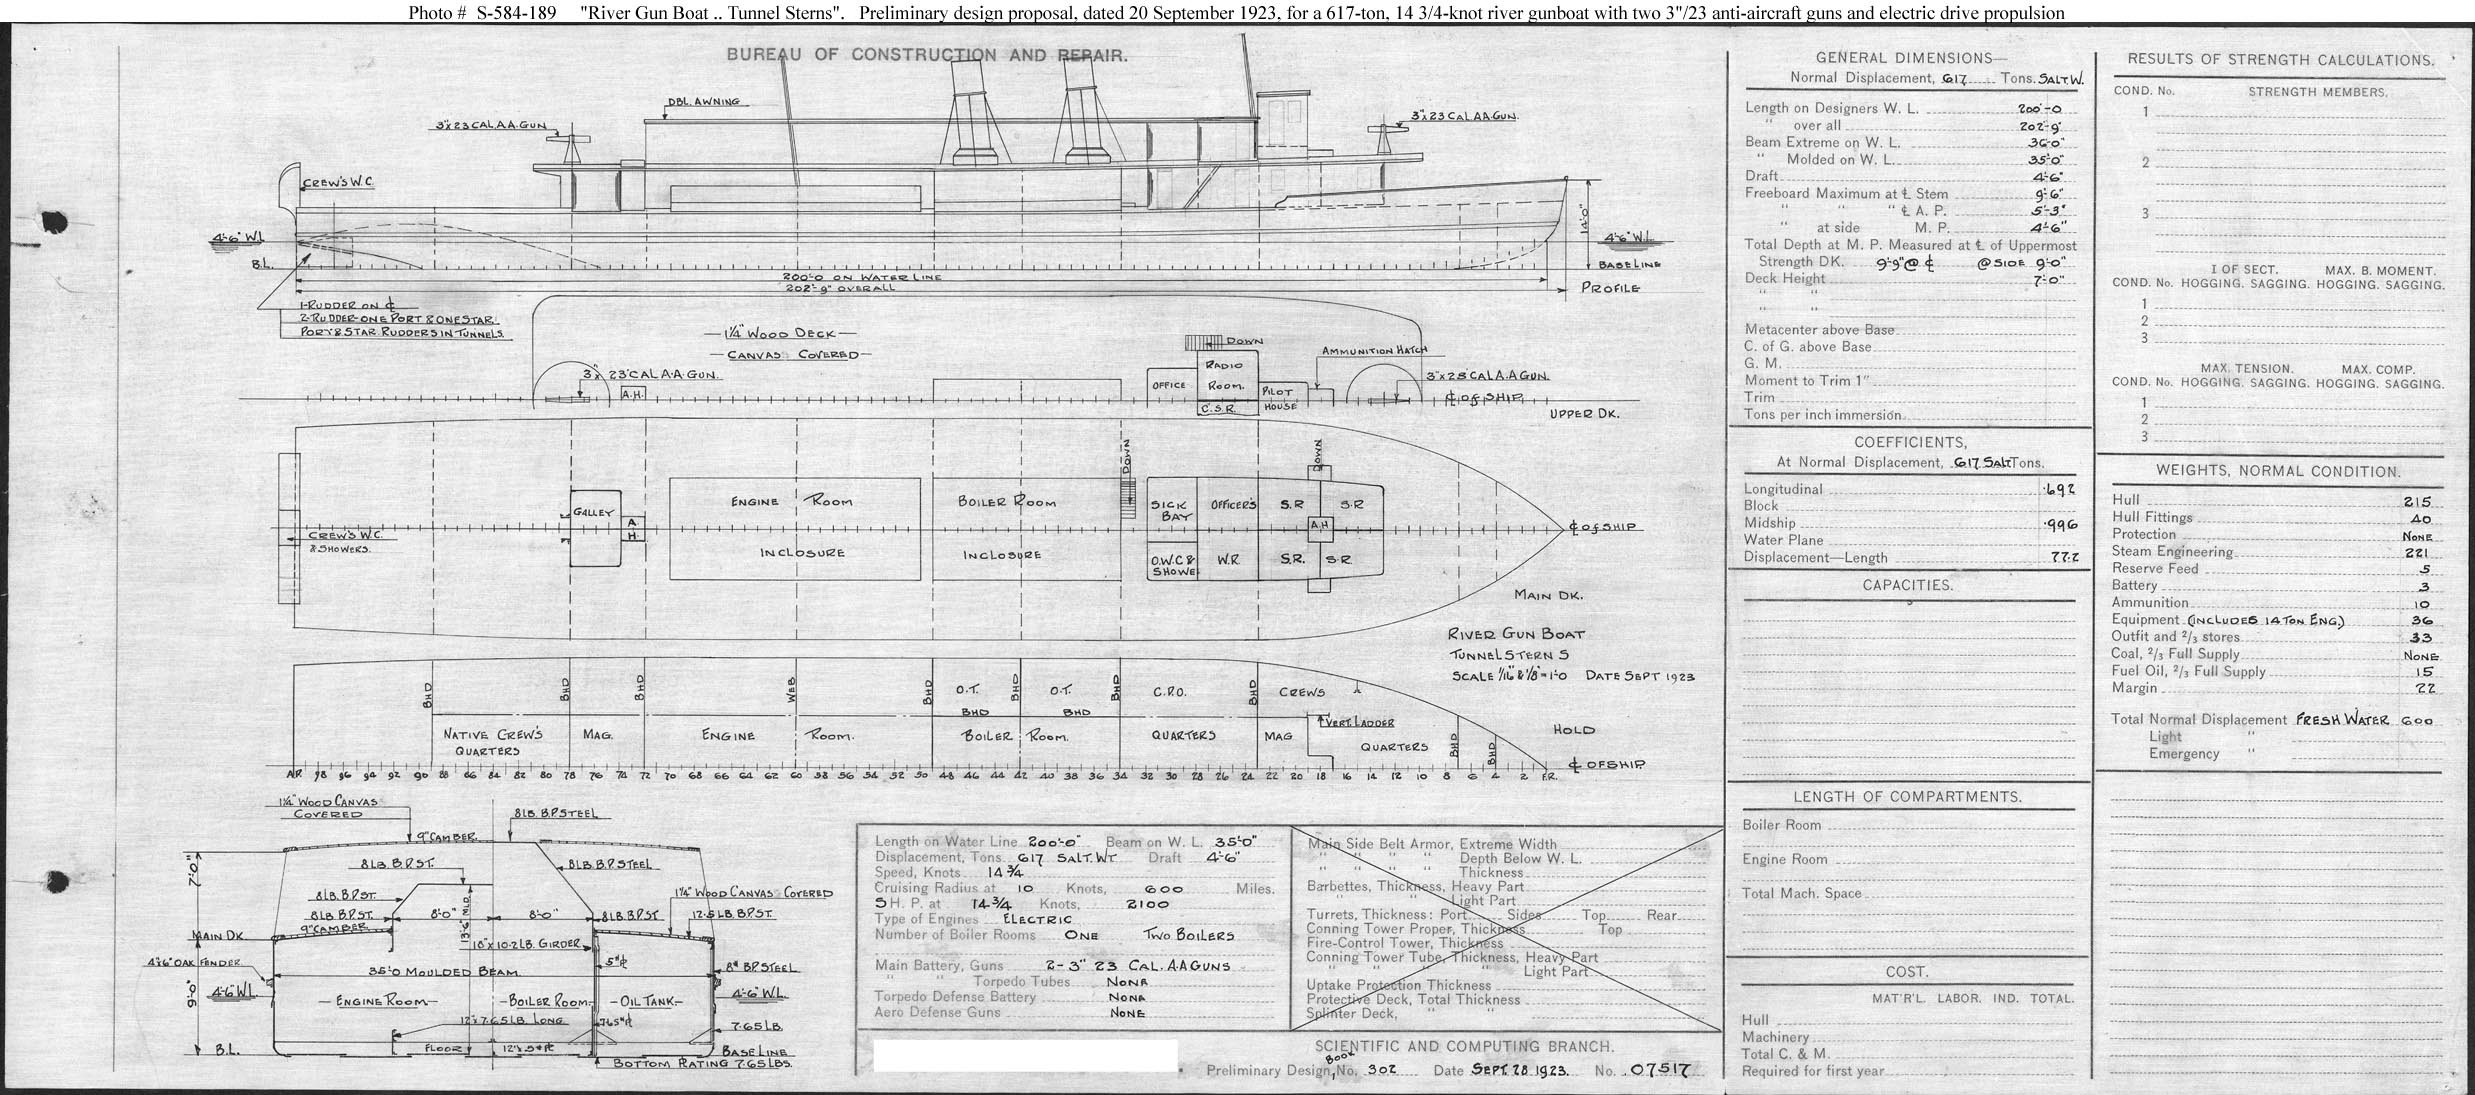 Photo # S-584-189 "River Gun Boat .. Tunnel Sterns". Preliminary design proposal, dated 20 September 1923, for a 617-ton, 14 3/4-knot river gunboat with two 3"/23 anti-aircraft guns and electric drive propulsion
BUREAU OF CONSTRUCTION AND REPAIR.
DBL. AWNING
3"x23 CAL.A.A.GUN
3"x23 CAL.A.A.GUN.
CREW'S W.C.
4'-6" W.L.
B.L.
14'-0"
4'-6" W.L.
BASE LINE
200'-0 ON WATER LINE
202'-9" OVERALL
PROFILE
1-RUDDER ON ℄
2-RUDDER-ONE PORT & ONE STAR.
PORT & STAR. RUDDERS IN TUNNELS.
—1¼" WOOD DECK—
—CANVAS COVERED—
3"x 23 CAL A.A. GUN.
A.H.
DOWN
RADIO
ROOM.
OFFICE
C.S.R.
PILOT
HOUSE
AMMUNITION HATCH
3"x23 CAL A.A GUN.
℄ OF SHIP.
UPPER DK.
CREW'S W.C.
& SHOWERS.
GALLEY
A.
H.
ENGINE ROOM
INCLOSURE
BOILER ROOM
INCLOSURE
DOWN
SICK
BAY
OFFICER'S
S.R
S.R
O.W.C &
SHOWE
W.R.
S.R.
S.R.
A.H
DOWN
℄ OF SHIP
MAIN DK.
RIVER GUN BOAT
TUNNEL STERNS
SCALE 1/16" & 1/8" = 1'-0 DATE SEPT 1923
BHD
BHD
BHD
WEB
BHD
O.T.
BHD
O.T.
BHD
BHD
BHD
C.P.O.
QUARTERS
BHD
CREWS
VERT. LADDER
QUARTERS
BHD
BHD
HOLD
NATIVE CREW'S
QUARTERS
MAG.
ENGINE ROOM.
BOILER ROOM.
MAG
℄ OF SHIP.
A.P. 98 96 94 92 90 88 86 84 82 80 78 76 74 72 70 68 66 64 62 60 58 56 54 52 50 48 46 44 42 40 38 36 34 32 30 28 26 24 22 20 18 16 14 12 10 8 6 4 2 F.P.
1¼" WOOD CANVAS
COVERED
8 LB. B.P. STEEL
9" CAMBER.
8 LB. B.P. ST.
8 LB. B.P. STEEL
7'-0"
8 LB. B.P. ST.
1¼" WOOD CANVAS COVERED
8 LB. B.P. ST.
8'-0"
8'-0"
8 LB. B.P. ST
12.5 LB. B.P. ST.
9" CAMBER
13'-6" MLD
MAIN DK.
18" x 10.2 LB. GIRDER
4"x6" OAK FENDER
5#℄
35'-0 MOULDED BEAM
8# B.P. STEEL
9'-0"
4'-6" W.L.
—ENGINE ROOM—
—BOILER ROOM—
—OIL TANK—
4'-6" W.L.
12" x 7.65 LB. LONG
7.65#℄
7.65 LB.
B.L.
FLOOR
BASE LINE
BOTTOM PLATING 7.65 LBS.
Length on Water Line 200'-0" Beam on W. L. 35'-0"
Displacement, Tons. 617 SALT. WT Draft 4'-6"
Speed, Knots 14 3/4
Cruising Radius at 10 Knots, 600 Miles.
S H. P. at 14 3/4 Knots, 2100
Type of Engines ELECTRIC
Number of Boiler Rooms ONE TWO BOILERS
Main Battery, Guns 2-3" 23 CAL. A.A GUNS
" " Torpedo Tubes NONE
Torpedo Defense Battery NONE
Aero Defense Guns NONE
Main Side Belt Armor, Extreme Width
" " " " Depth Below W. L.
" " " " Thickness
Barbettes, Thickness, Heavy Part
" " Light Part
Turrets, Thickness: Port Sides Top Rear
Conning Tower Proper, Thickness Top
Fire-Control Tower, Thickness
Conning Tower Tube, Thickness, Heavy Part
" " " " Light Part
Uptake Protection Thickness
Protective Deck, Total Thickness
Splinter Deck, " "
SCIENTIFIC AND COMPUTING BRANCH.
Preliminary Design, Book No. 302 Date SEPT. 28 1923. No. 07517
GENERAL DIMENSIONS—
Normal Displacement, 617 Tons. SALT. W.
Length on Designers W. L. 200'-0
" over all 202'-9"
Beam Extreme on W. L. 36'-0"
" Molded on W. L. 35'-0"
Draft 4'-6"
Freeboard Maximum at ℄ Stem 9'-6"
" " " ℄ A. P. 5'-3"
" at side M. P. 4'-6"
Total Depth at M. P. Measured at ℄ of Uppermost
Strength DK. 9'-9" @ ℄ @ SIDE 9'-0"
Deck Height 7'-0"
" "
Metacenter above Base
C. of G. above Base
G. M.
Moment to Trim 1"
Trim
Tons per inch immersion
COEFFICIENTS,
At Normal Displacement, 617 SALT Tons.
Longitudinal .692
Block
Midship .996
Water Plane
Displacement—Length 77.2
CAPACITIES.
LENGTH OF COMPARTMENTS.
Boiler Room
Engine Room
Total Mach. Space
COST.
MAT'R'L. LABOR. IND. TOTAL.
Hull
Machinery
Total C. & M.
Required for first year
RESULTS OF STRENGTH CALCULATIONS.
COND. No. STRENGTH MEMBERS.
1
2
3
I OF SECT. MAX. B. MOMENT.
COND. No. HOGGING. SAGGING. HOGGING. SAGGING.
1
2
3
MAX. TENSION. MAX. COMP.
COND. No. HOGGING. SAGGING. HOGGING. SAGGING.
1
2
3
WEIGHTS, NORMAL CONDITION.
Hull 215
Hull Fittings 40
Protection NONE
Steam Engineering 221
Reserve Feed 5
Battery 3
Ammunition 10
Equipment (INCLUDES 14 TON ENG.) 36
Outfit and 2/3 stores 33
Coal, 2/3 Full Supply NONE
Fuel Oil, 2/3 Full Supply 15
Margin 22
Total Normal Displacement FRESH WATER 600
Light "
Emergency "